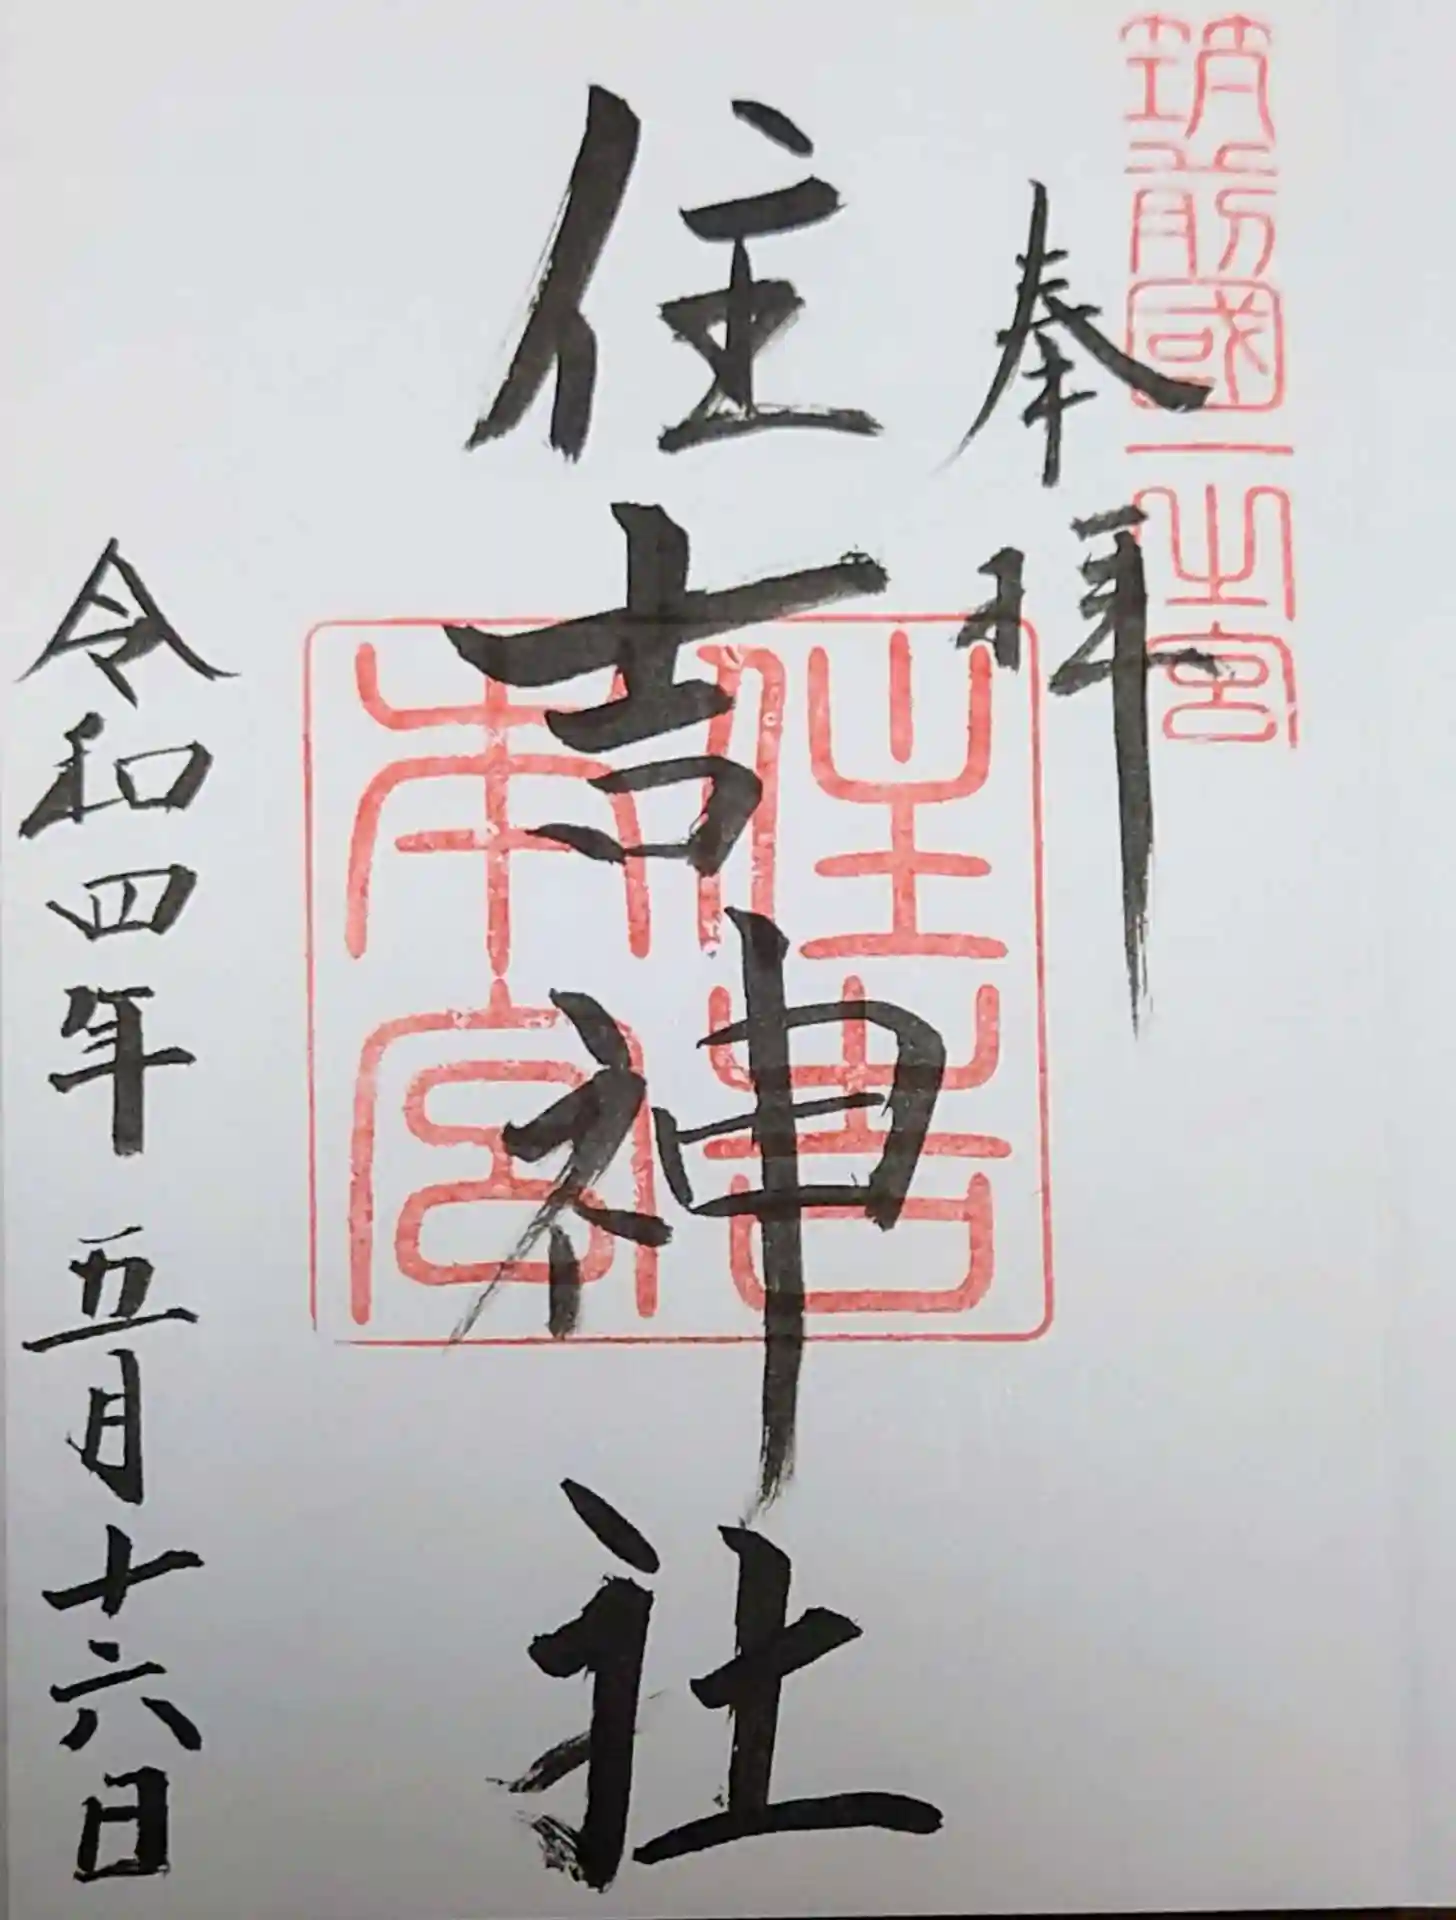 筑前國一之宮
奉拝
住吉神社
住吉
本宮
令和四年五月十六日